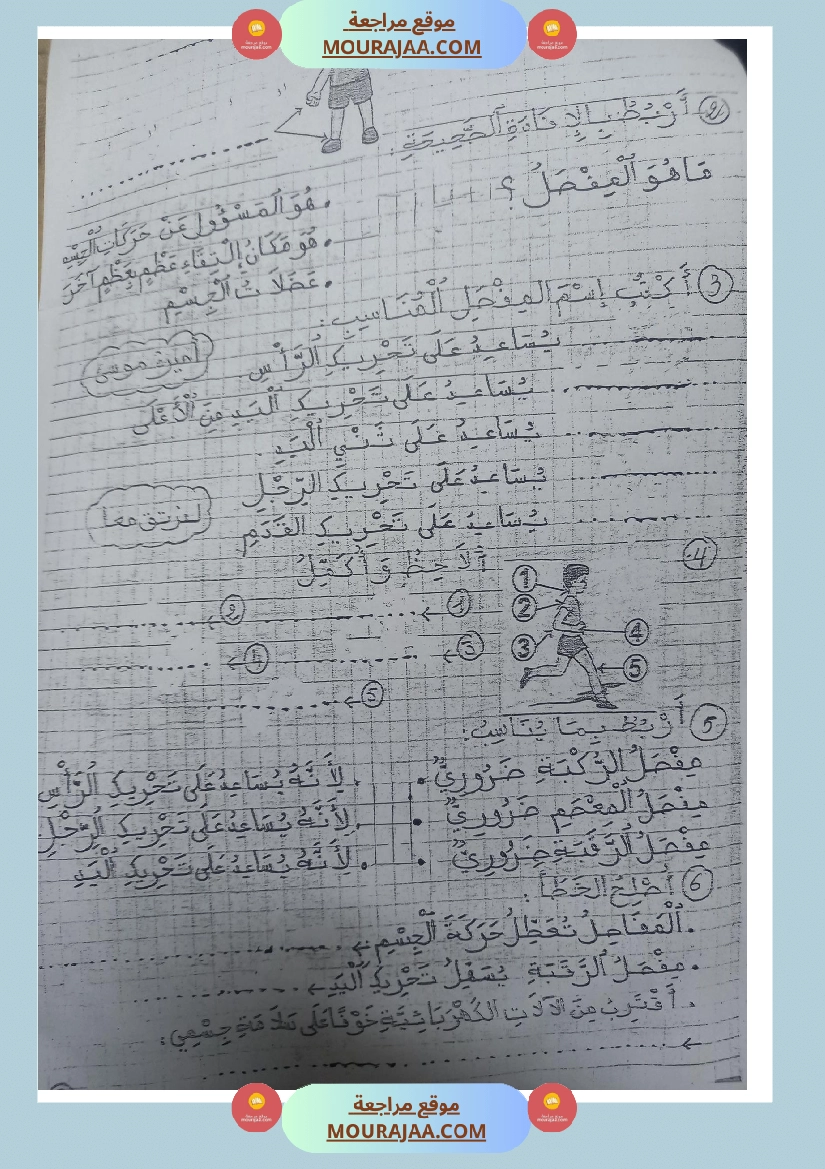 موقع مراجعة
MOURAJAA.COM
② أَرْبُطُ بِالإِفَادَةِ الصَّحِيحَةِ:
مَا هُوَ الْمِفْصَلُ؟
• هُوَ الْمَسْؤُولُ عَنْ حَرَكَاتِ الْجِسْمِ
• هُوَ مَكَانُ إِلْتِقَاءِ عَظْمٍ بِعَظْمٍ آخَرَ
• عَضَلَاتُ الْجِسْمِ
③ أَكْتُبُ إِسْمَ الْمِفْصَلِ الْمُنَاسِبِ:
........ يُسَاعِدُ عَلَى تَحْرِيكِ الرَّأْسِ
........ يُسَاعِدُ عَلَى تَحْرِيكِ الْيَدِ مِنَ الْأَعْلَى
........ يُسَاعِدُ عَلَى ثَنْيِ الْيَدِ.
........ يُسَاعِدُ عَلَى تَحْرِيكِ الرِّجْلِ
........ يُسَاعِدُ عَلَى تَحْرِيكِ الْقَدَمِ
أمينة موسى
لنرتق معا
④ أُلَاحِظُ وَأُكَمِّلُ
① ② ③ ④ ⑤
① ←........ ② ←........
③ ←........ ④ ←........
⑤ ←........
⑤ أَرْبُطُ بِمَا يُنَاسِبُ:
مِفْصَلُ الرُّكْبَةِ ضَرُورِيٌّ • • لِأَنَّهُ يُسَاعِدُ عَلَى تَحْرِيكِ الرَّأْسِ
مِفْصَلُ الْمِعْصَمِ ضَرُورِيٌّ • • لِأَنَّهُ يُسَاعِدُ عَلَى تَحْرِيكِ الرِّجْلِ
مِفْصَلُ الرَّقَبَةِ ضَرُورِيٌّ • • لِأَنَّهُ يُسَاعِدُ عَلَى تَحْرِيكِ الْيَدِ
⑥ أُصْلِحُ الْخَطَأَ:
• الْمَفَاصِلُ تُعَطِّلُ حَرَكَةَ الْجِسْمِ ←........
• مِفْصَلُ الرَّقَبَةِ يُسَهِّلُ تَحْرِيكَ الْيَدِ ←........
• أَقْتَرِبُ مِنَ الآلَاتِ الْكَهْرَبَائِيَّةِ خَوْفًا عَلَى سَلَامَةِ جِسْمِي:
←........
موقع مراجعة
MOURAJAA.COM